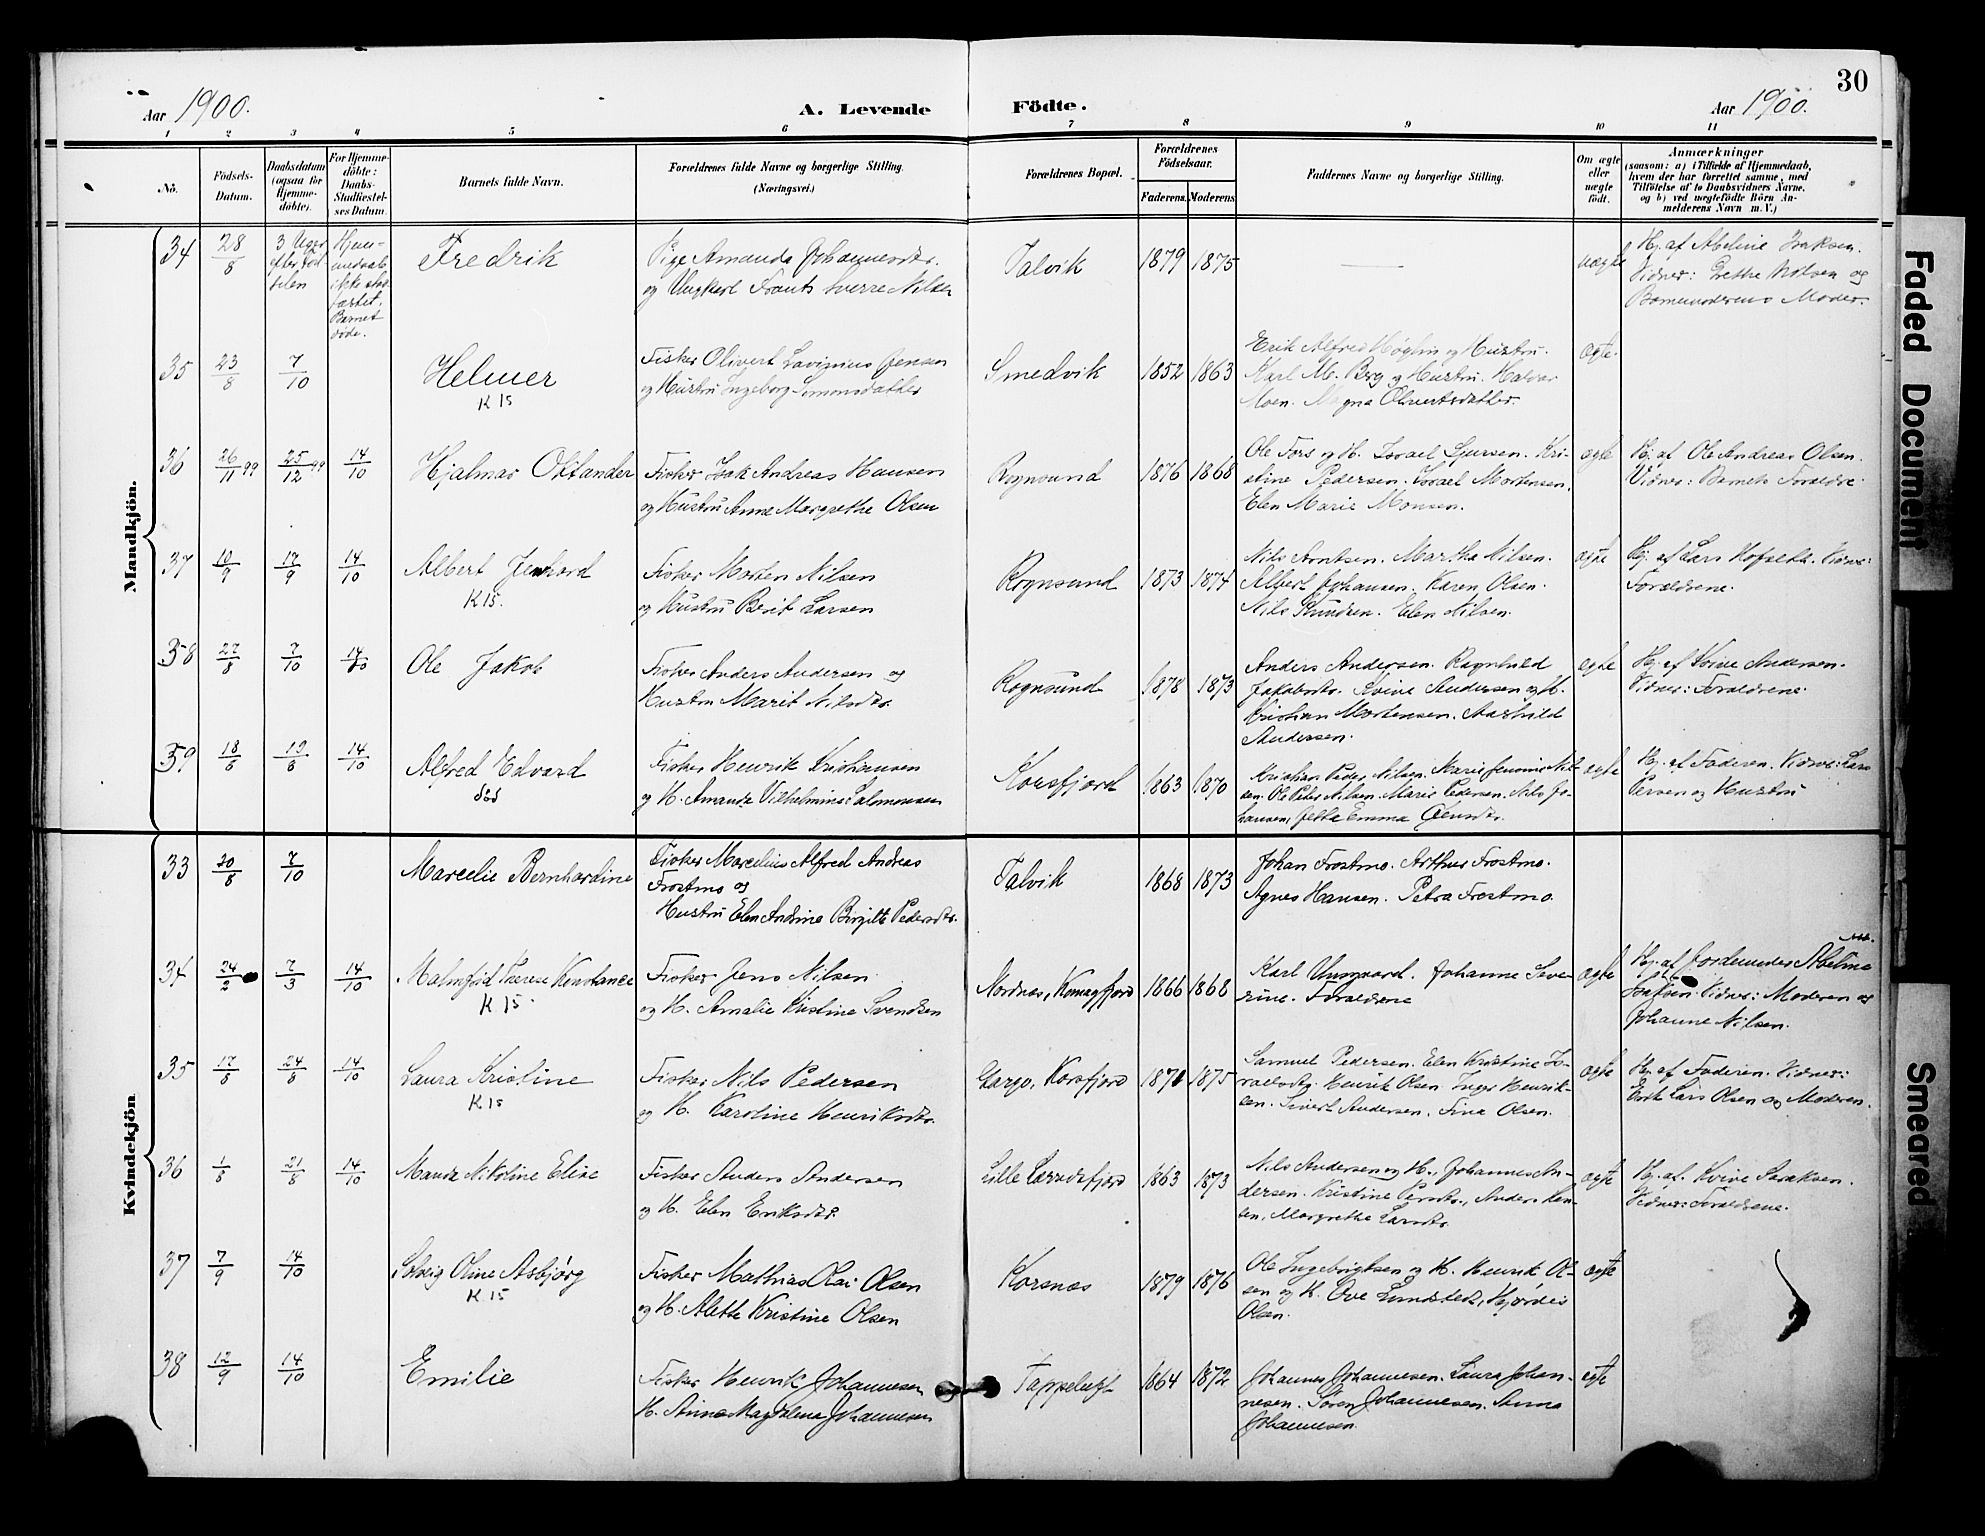 30
Aar 1900.
A. Levende Födte.
Aar 1900.
1 2 3 4 5 6 7 8 9 10 11
No.
Födsels-Datum.
Daabsdatum (ogsaa for Hjemme-döbte).
For Hjemme-döbte: Daabs-Stadfæstel-ses Datum.
Barnets fulde Navn.
Forældrenes fulde Navne og borgerlige Stilling. (Næringsvei.)
Forældrenes Bopæl.
Forældrenes Födselsaar.
Faderens. Moderens.
Faddernes Navne og borgerlige Stilling.
Om ægte eller uægte født.
Anmærkninger
(saasom: a) i Tilfælde af Hjemmedaab, hvem der har forrettet samme, med Tilföielse af to Daabsvidners Navne, og b) ved uægtefödte Börn An-melderens Navn m. V.)
Mandkjön.
34 28/8 3 Uger efter Fød-selen Hjem-medaab ikke stad-fæstet. Barnet døde. Fredrik
Pige Amanda Johannesdtr.
og Ungkarl Frants Sverre Nilsen
Talvik 1879 1875 uægte
Hj. af Abeline Isaksen.
Vidner: Grethe Nilsen og
Barnemoderens Moder.
35 23/8 7/10 Helmer
K 15
Fisker Olivert Lavinius Jensen
og Hustru Ingeborg Simonsdatter
Smedvik 1852 1863
Erik Alfred Høglin og Hustru.
Karl M. Berg og Hustru. Halvor
Moen. Magna Olivertsdatter.
ægte
36 26/11 99 25/12 99 14/10 Hjalmar Ottander
Fisker Isak Andreas Hansen
og Hustru Anne Margrethe Olsen
Rognsund 1876 1868
Ole Fors og H. Israel Sjursen. Kri-
stine Pedersen. Israel Mortensen.
Elen Marie Monsen.
ægte
Hj. af Ole Andreas Olsen.
Vidner: Barnets Forældre.
37 10/9 17/9 14/10 Albert Jenhard
K 15.
Fisker Morten Nilsen
og Hustru Berit Larsen
Rognsund 1873 1874
Nils Arntsen. Martha Nilsen.
Albert Johansen. Karen Olsen.
Nils Knudsen. Elen Nilsen.
ægte
Hj. af Lars Hofseth. Vidner:
Forældrene.
38 27/8 7/10 14/10 Ole Jakob
Fisker Anders Andersen og
Hustru Marit Nilsdtr.
Rognsund 1878 1873
Anders Andersen. Ragnhild
Jakobsdtr. Kvive Andersen og H.
Kristian Mortensen. Aashild
Andersen.
ægte
Hj. af Kvive Andersen.
Vidner: Forældrene.
39 18/6 19/6 14/10 Alfred Edvard
død
Fisker Henrik Kristiansen
og H. Amanda Vilhelmine Salomonsen
Korsfjord 1863 1870
Kristian Peder Nilsen. Marie Jensine Nil-
sen. Ole Peter Nilsen. Marie Pedersen. Nils Jo-
hansen, Jetta Emma Olsendtr.
ægte
Hj. af Faderen. Vidner: Lars
Persen og Hustru
Kvindekjön
33 20/8 7/10 Marcelie Bernhardine
Fisker Marcelius Alfred Andreas
Frostmo og
Hustru Elen Andrine Birgitte Pedersdtr.
Talvik 1868 1873
Johan Frostmo. Arthur Frostmo.
Agnes Hansen. Petra Frostmo.
34 24/2 7/3 14/10 Malmfrid Therese Konstance
K 15.
Fisker Jens Nilsen
og H. Amalie Kristine Svendsen
Nordnæs, Komagfjord 1866 1868
Karl Unngaard. Johanne Seve-
rine. Forældrene
ægte
Hj. af Jordemoder Abeline
Isaksen. Vidner: Moderen og
Johanne Nilsen.
35 17/8 24/8 14/10 Laura Kristine
K 15
Fisker Nils Pedersen
og H. Karoline Henriksdtr.
Gargo, Korsfjord 1871 1875
Samuel Pedersen. Elen Kristine Is-
raelsdtr. Henrik Olsen. Inger Henrik-
sen. Sivert Andersen. Fina Olsen.
ægte
Hj. af Faderen. Vidner:
Erik Lars Olsen og Moderen.
36 1/8 21/8 14/10 Manda Nikoline Elise
Fisker Anders Andersen
og H. Elen Eriksdtr.
Lille Lerredsfjord 1863 1873
Nils Andersen og H., Johannes An-
dersen. Kristine Persdtr., Anders Han-
sen, Margrethe Larsdtr.
ægte
Hj. af Kvive Isaksen.
Vidner: Forældrene.
37 7/9 14/10 Solveig Oline Asbjørg
K. 15
Fisker Mathias Kai Olsen
og H. Alette Kristine Olsen
Korsnæs 1879 1876
Ole Ingebrigtsen og H. Henrik Ol-
sen og H. Ove Lundstedt, Hjørdis
Olsen.
ægte
38 12/9 14/10 Emilie
Fisker Henrik Johannesen
H. Anna Magdalena Johannesen
Tappeluft 1864 1872
Johannes Johannesen. Laura Johan-
nesen. Søren Johannesen. Anna
Johannesen.
ægte
Faded Document
Smeared